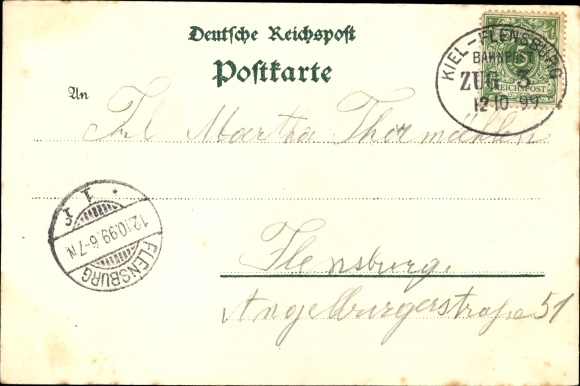 Deutsche Reichspost
Postkarte
An
KIEL-FLENSBURG
BAHNPOST
ZUG 3
12 10 99
5
REICHSPOST
Frl Martha Thormählen
* 1 J
12.10.99.6-7N.
FLENSBURG
Flensburg.
Angelburgerstraße 51